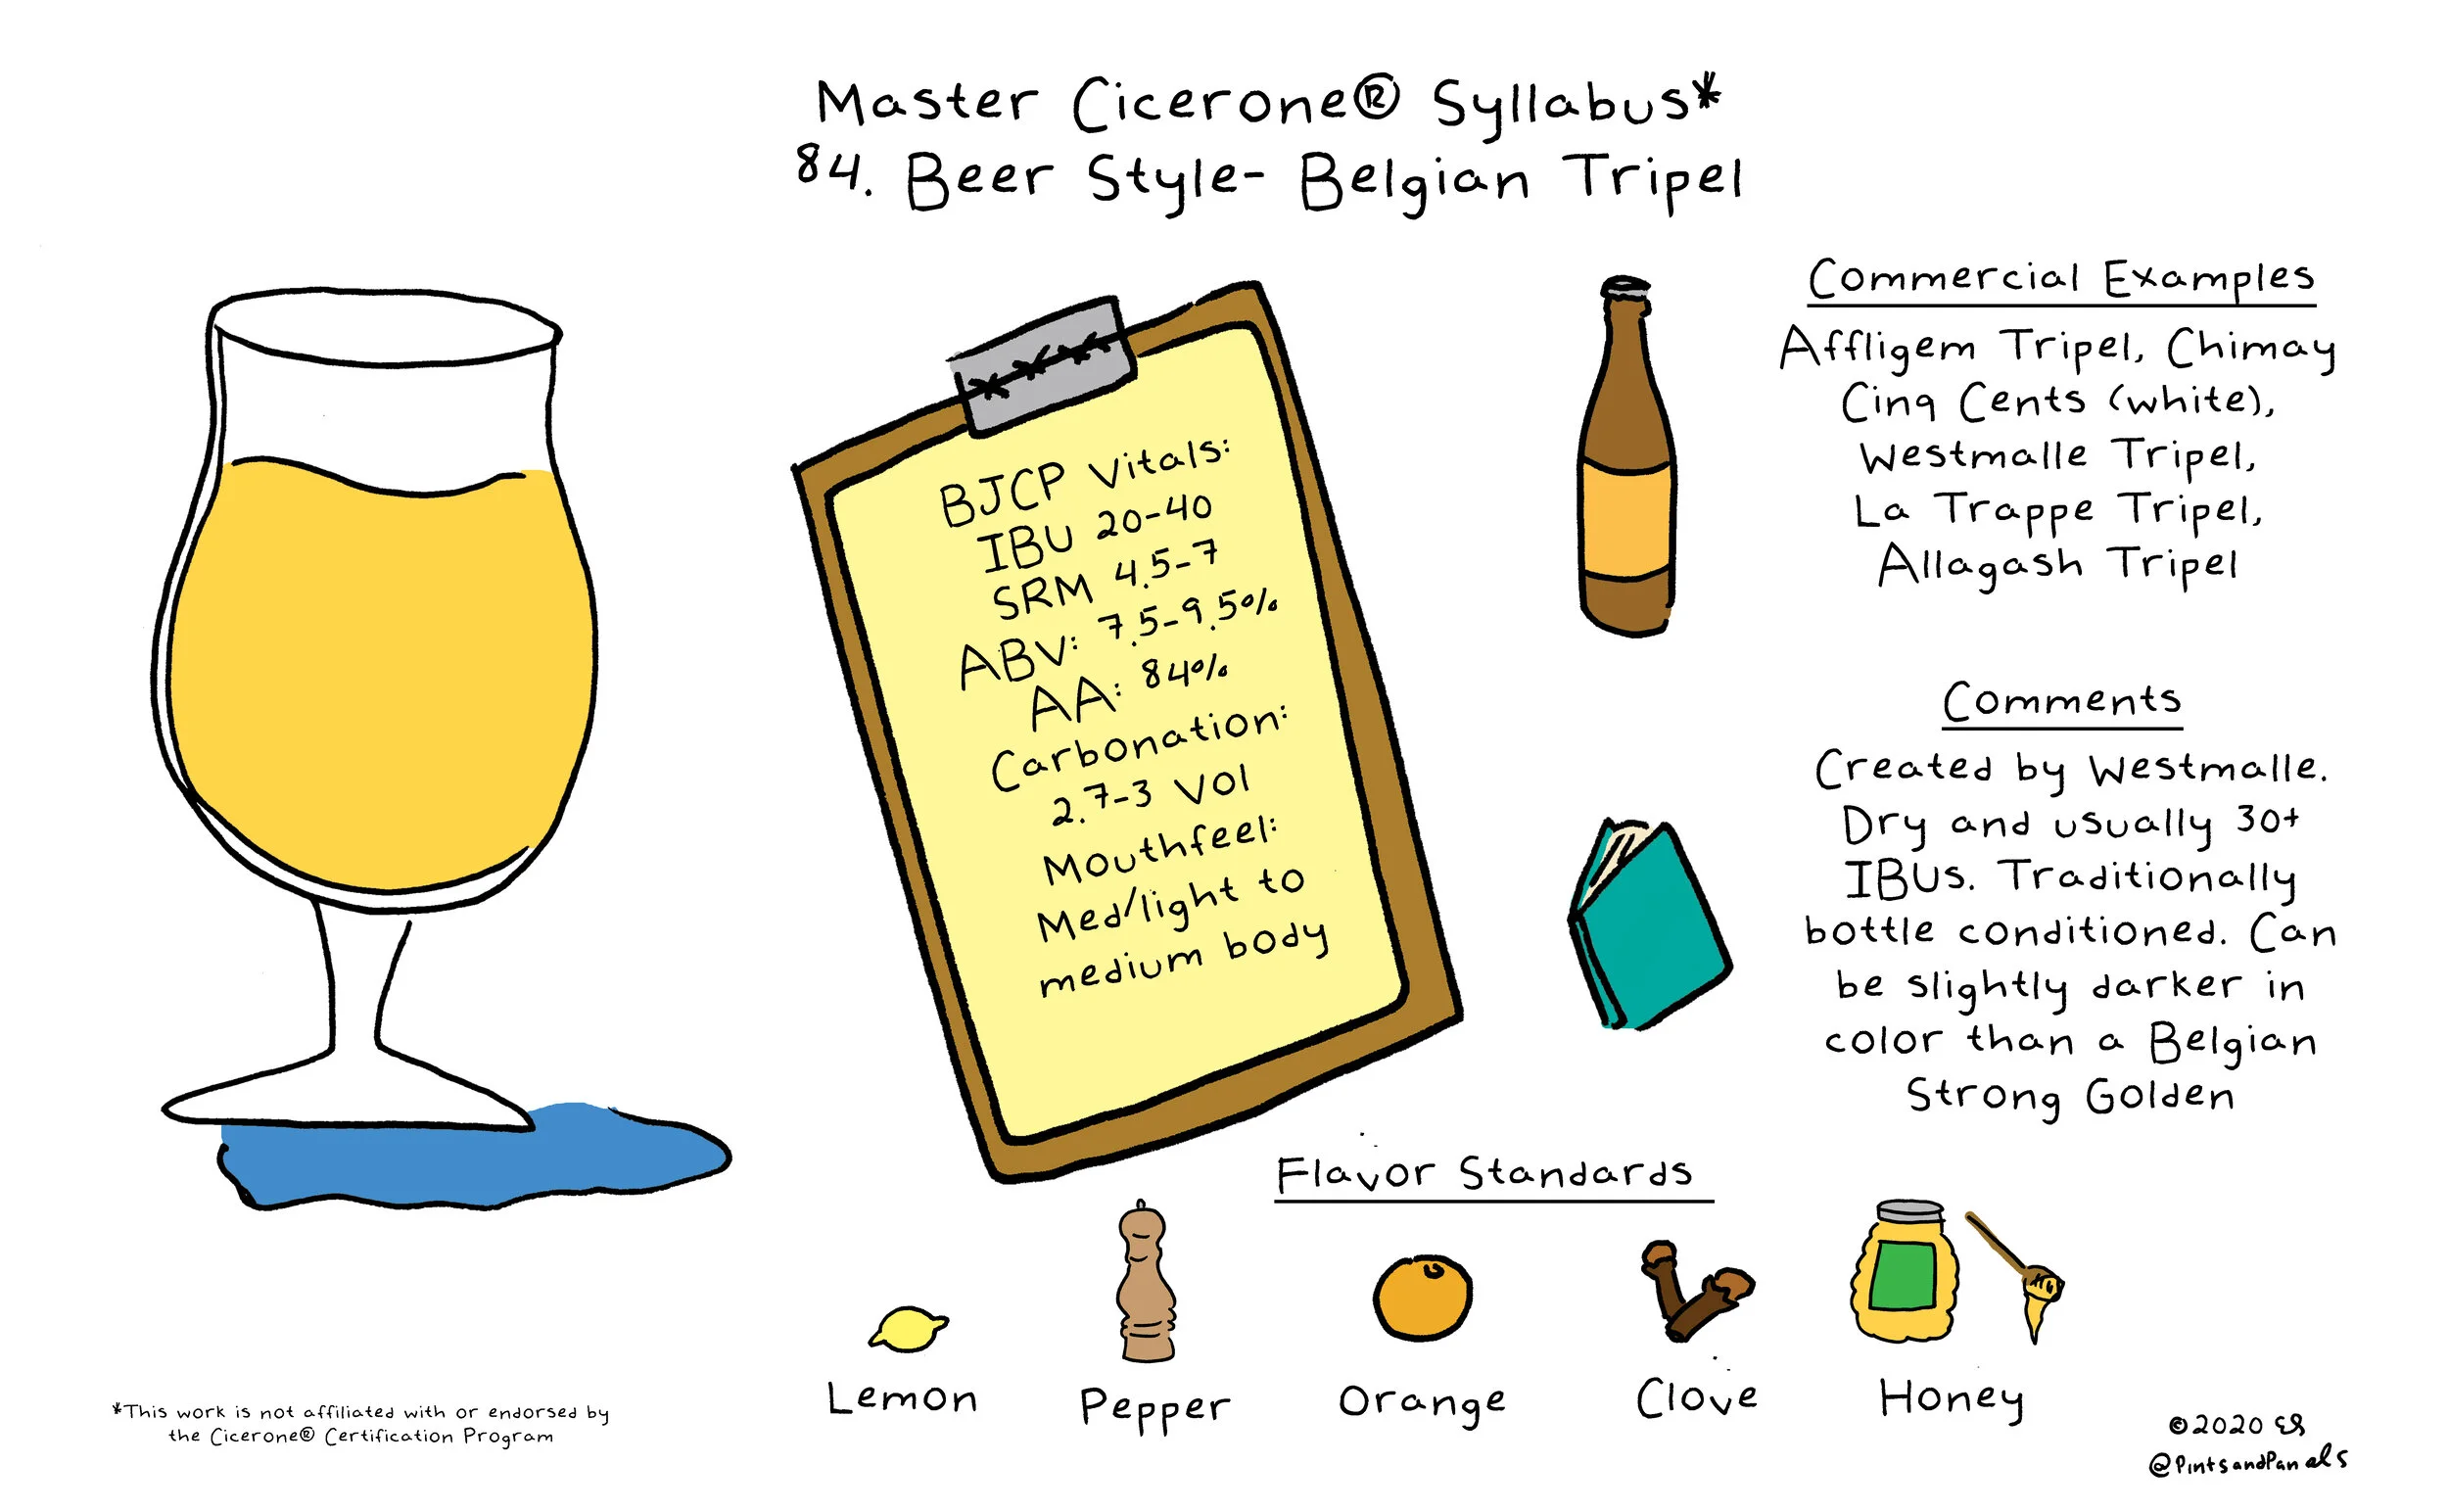 Master Cicerone® Syllabus*
84. Beer Style- Belgian Tripel
BJCP Vitals:
IBU 20-40
SRM 4.5-7
ABV: 7.5-9.5%
AA: 84%
Carbonation:
2.7-3 Vol
Mouthfeel:
Med/light to
medium body
Commercial Examples
Affligem Tripel, Chimay
Cinq Cents (white),
Westmalle Tripel,
La Trappe Tripel,
Allagash Tripel
Comments
Created by Westmalle.
Dry and usually 30+
IBUs. Traditionally
bottle conditioned. Can
be slightly darker in
color than a Belgian
Strong Golden
Flavor Standards
Lemon
Pepper
Orange
Clove
Honey
*This work is not affiliated with or endorsed by
the Cicerone® Certification Program
©2020 ES
@PintsandPanels